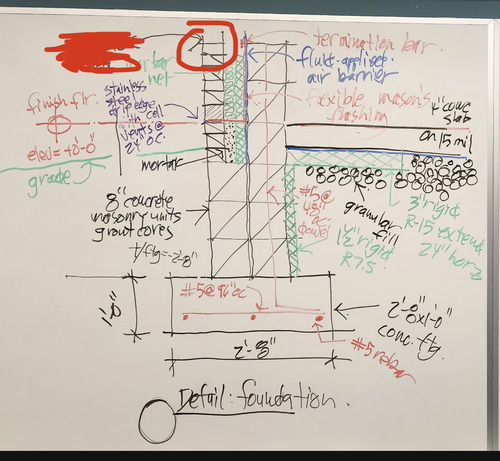 termination bar.
mortar
net
fluid-applied
air barrier
stainless
steel
drip edge
with cell
vents @
24" oc.
flexible mason's
flashin
4" conc.
slab
on 15 mil
finish flr.
elev = +0'-0"
grade
mortar
8" concrete
masonry units
grout cores
t/ftg = -2'-8"
#5@
48"
oc
dowel
granular
fill
3" rigid
R-15 extend
24" horz
1½" rigid
R7.5
1'-0"
#5@96" oc
2'-8"
2'-8"
0x1'-0"
conc. ftg.
#5 rebar
Detail: foundation.